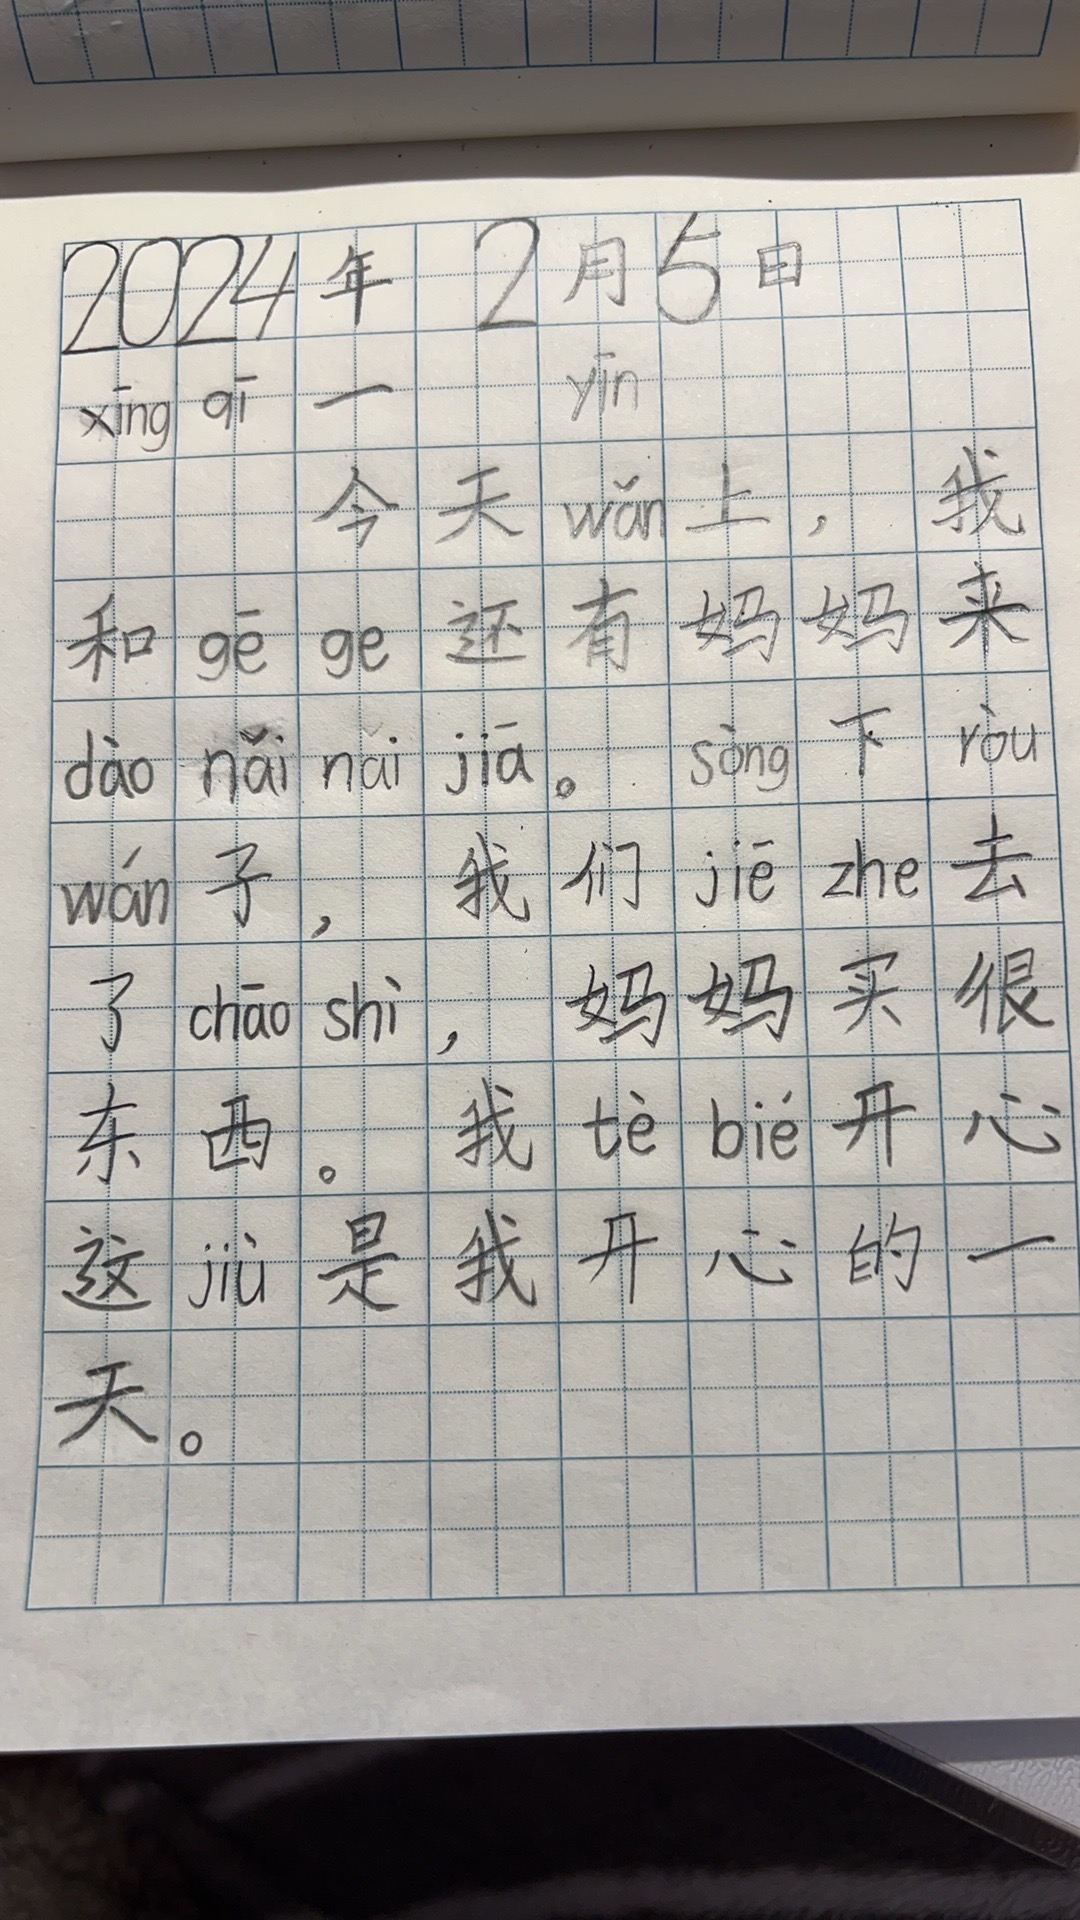 2024年 2月5日
xīng qī 一 yīn
今天 wǎn 上，我
和 gē ge 还有妈妈来
dào nǎi nǎi jiā。sòng 下 ròu
wán 子，我们 jiē zhe 去
了 chāo shì，妈妈买很
东西。我 tè bié 开心
这 jiù 是我开心的一
天。